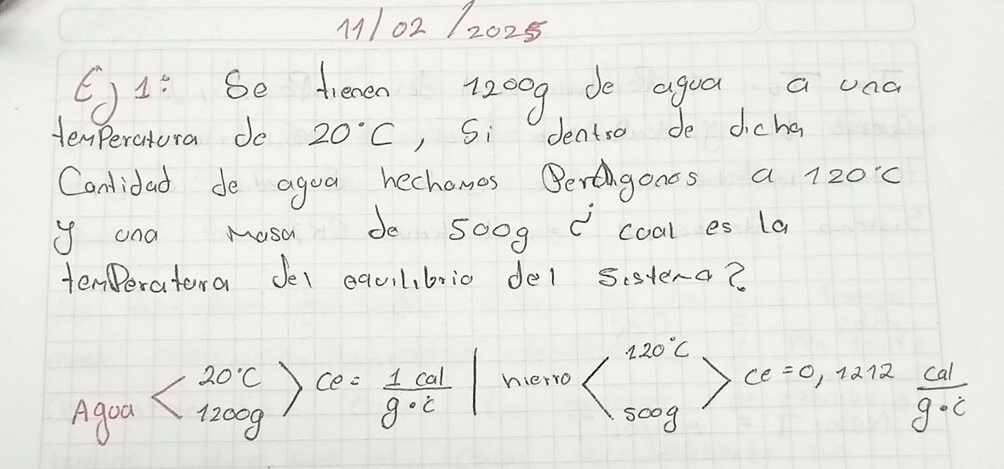 11/02/2025
Ej 1: Se tienen 1200g de agua a una
temperatura de 20°C, Si dentro de dicha
Cantidad de agua hechamos Perdigones a 120°C
y una masa de 500g ¿ cual es la
temperatura del equilibrio del sistema?
Agua < 20°C 1200g > ce = 1 cal / g·c | hierro < 120°C 500g > ce = 0,1212 cal / g·c